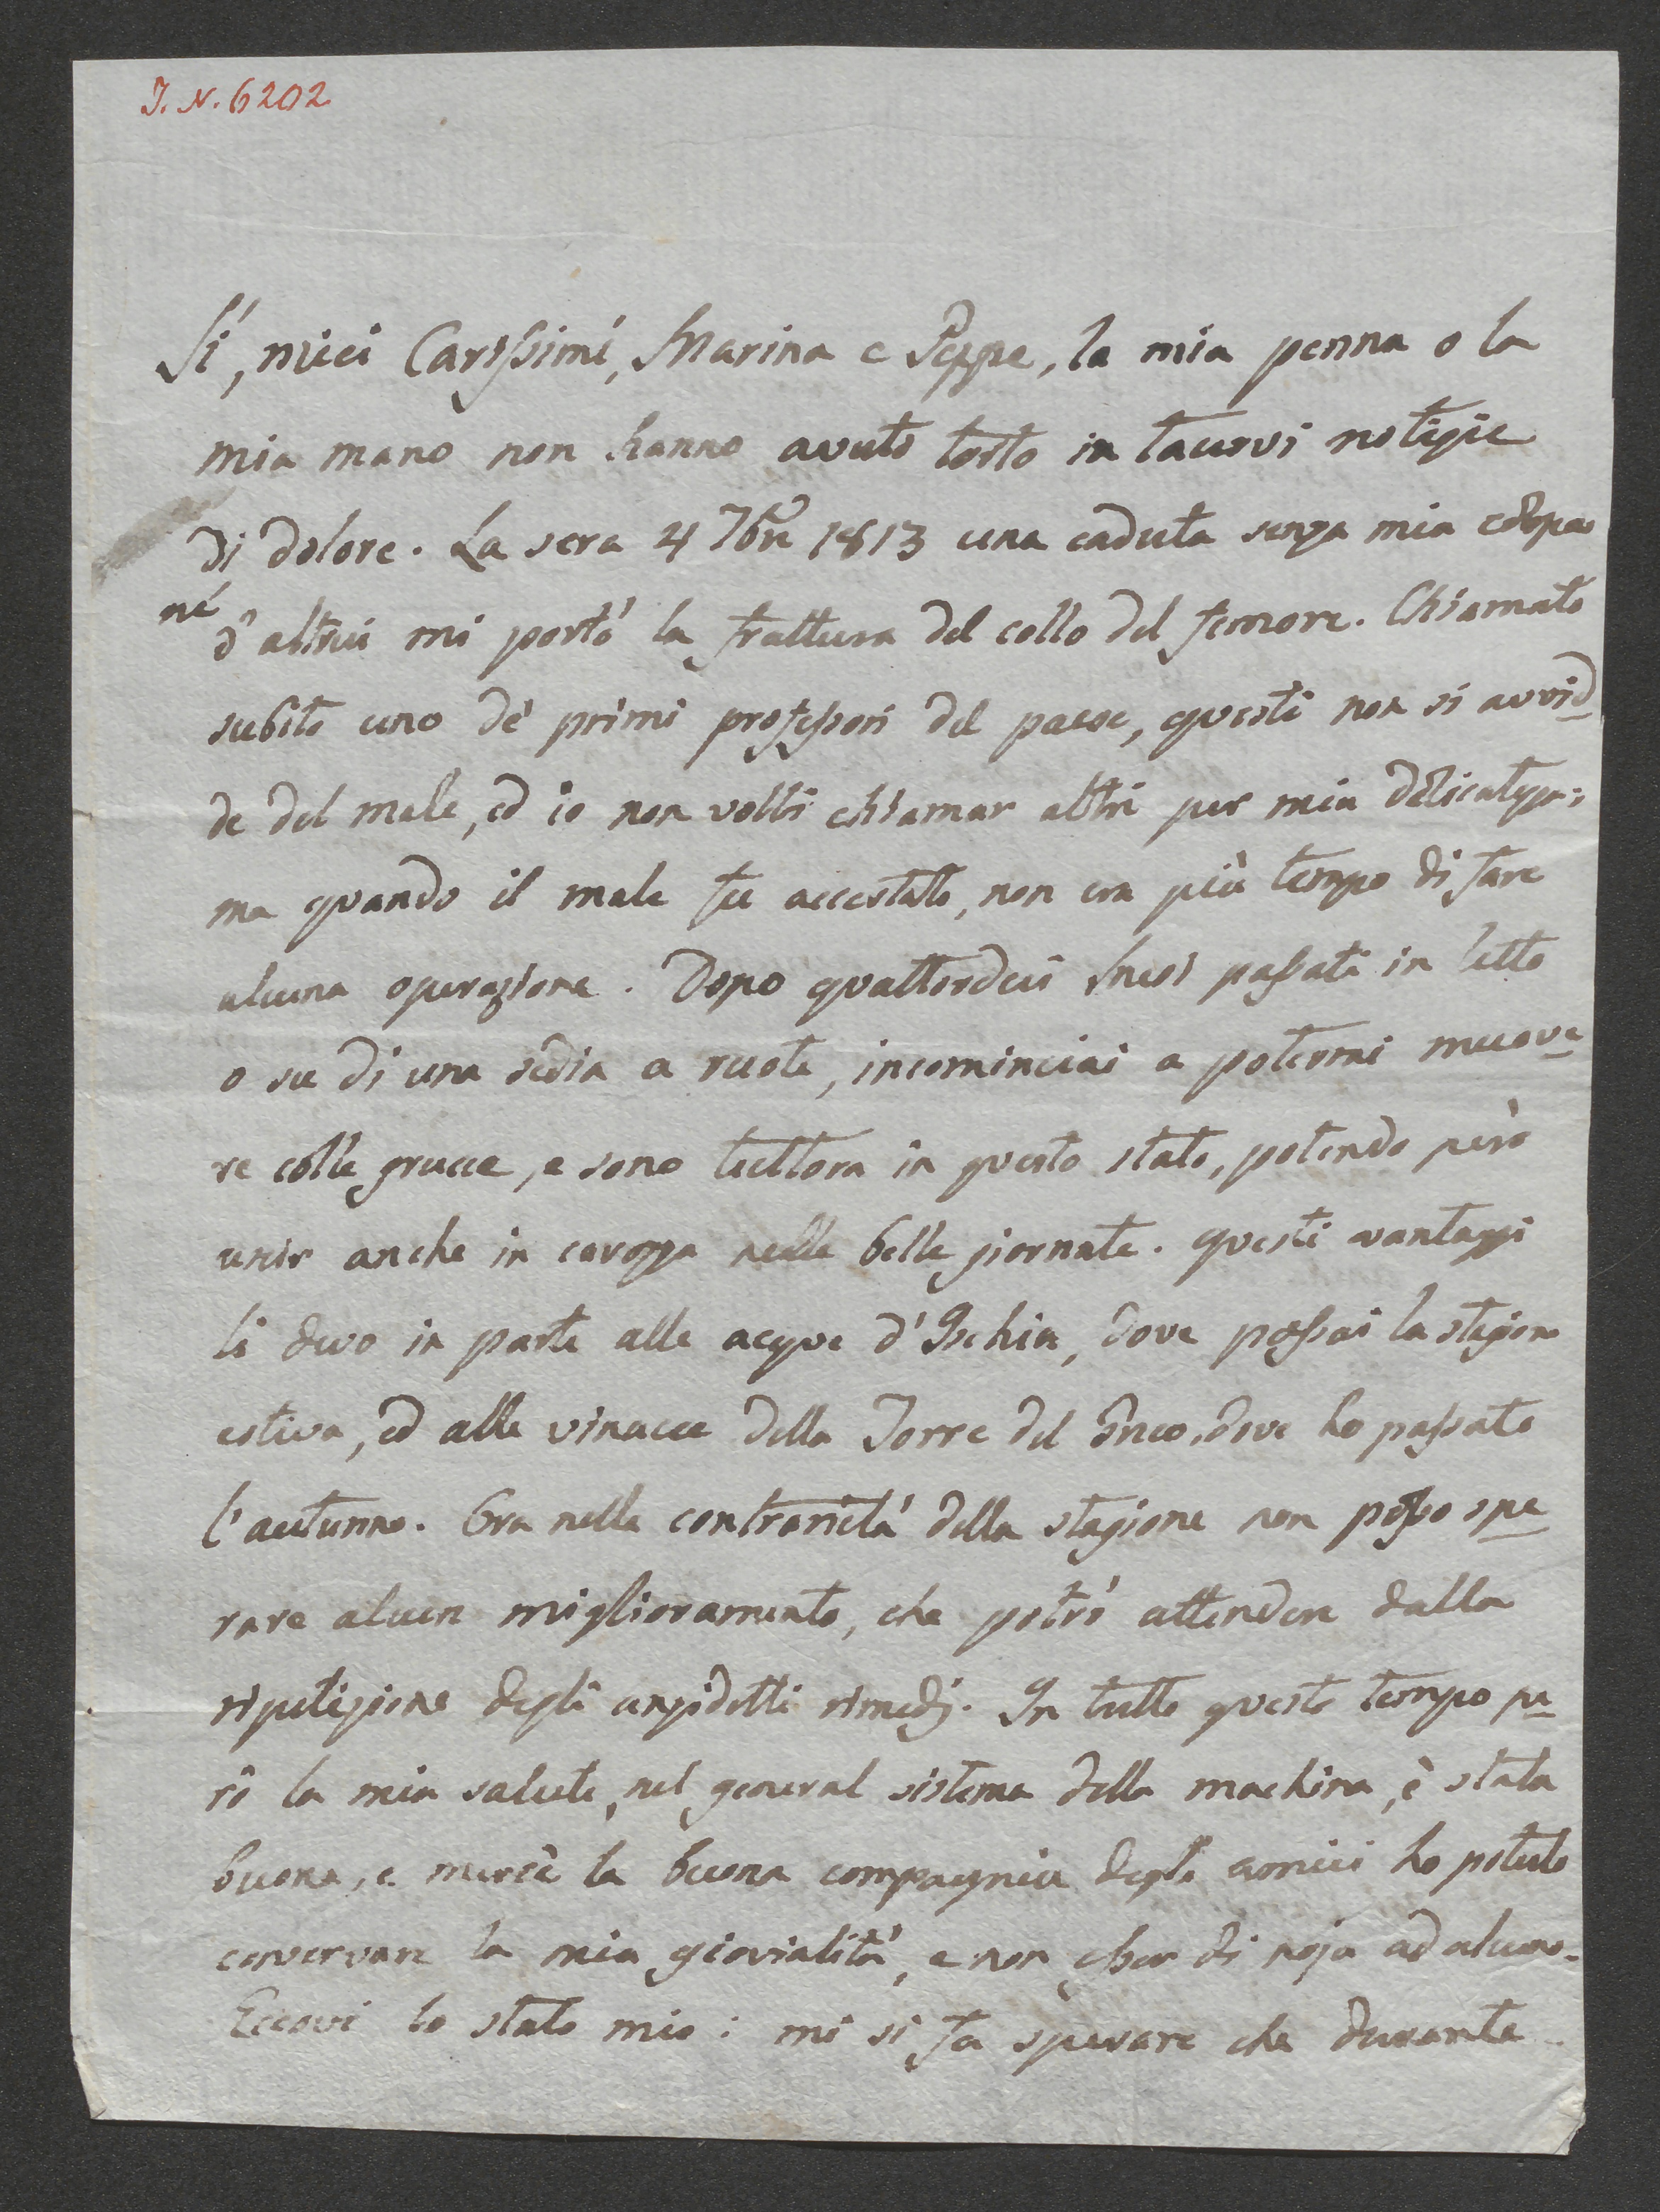 I. N. 6202
Sì, miei Carissimi, Marina e Peppe, la mia penna o la
mia mano non hanno avuto torto in tacervi notizie
di dolore. La sera 4 7bre 1813 una caduta senza mia colpa
né d'altrui mi portò la frattura del collo del femore. Chiamato
subito uno de' primi professori del paese, questi non si avvid
de del male, ed io non volli chiamar altri per mia delicatezza;
ma quando il male fu accertato, non era più tempo di fare
alcuna operazione. Dopo quattordeci Mesi passati in letto
o su di una sedia a ruote, incominciai a potermi muove
re colle grucce, e sono tuttora in questo stato, potendo però
uscir anche in carozza nelle belle giornate. Questi vantaggi
li devo in parte alle acque d'Ischia, dove passai la stagion
estiva, ed alle vinacce della Torre del Greco, dove ho passato
l'autunno. Ora nella contrarietà della stagione non posso spe
rare alcun miglioramento, che potrò attendere dalla
ripetizione degli anzidetti rimedj. In tutto questo tempo pe
rò la mia salute, nel general sistema della machina, è stata
buona, e mercè la buona compagnia degli amici ho potuto
conservare la mia giovialità, e non esser di noja ad alcuno.
Eccovi lo stato mio: mi si fa sperare che durante